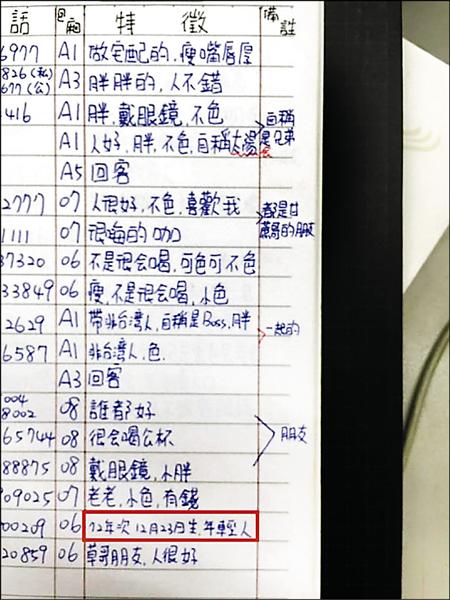 話 包廂 特徵 備註
6977 A1 做宅配的,瘦嘴唇厚
826(私) 677(公) A3 胖胖的,人不錯
416 A1 胖,戴眼鏡,不色 自稱是兄弟
A1 人好,胖,不色,自稱太陽
A5 回客
2777 07 人很好,不色,喜歡我 都是甘蔗哥的朋友
1111 07 很嗨的
37320 06 不是很会喝,可色可不色
33849 06 瘦,不是很会喝,小色
2629 A1 帶非台灣人,自稱是Boss,胖 一起的
6587 A1 非台灣人,色.
A3 回客
004 8002 08 誰都好
65744 08 很会喝公杯 朋友
88875 08 戴眼鏡,小胖
909025 07 老老,小色,有錢
00209 06 72年次12月23日生,年輕人
20859 06 草哥朋友,人很好